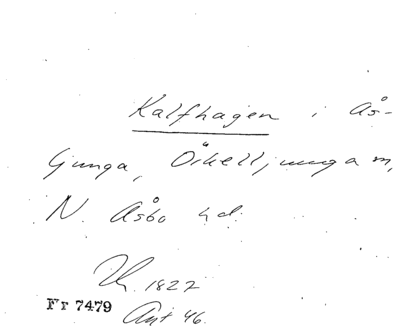 Kalfhagen i Ås-
ljunga, Örkelljunga sn,
N. Åsbo hd.
1827
Fr 7479
Ant 46.